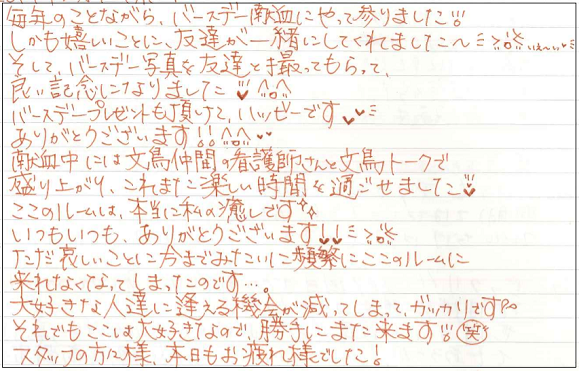 毎年のことながら、バースデー献血にやって参りました!!!
しかも嬉しいことに、友達が一緒にしてくれてました〜
そして、バースデー写真を友達と撮ってもらって、
良い記念になりました ^o^
バースデープレゼントも頂けて、ハッピーです
ありがとうございます!! ^o^
献血中には文鳥仲間の看護師さんと文鳥トークで
盛り上がり、これまたこ楽しい時間を過ごせました
ここのルームは、本当に私の癒しです
いつもいつも、ありがとうございます!!
ただ哀しいことに今までみたいに頻繁にここのルームに
来れなくなってしまったのです…。
大好きな人達に逢える機会が減ってしまって、ガッカリです
それでもここは大好きなので、勝手にまた来ます!!! 笑
スタッフの方々様、本日もお疲れ様でした!